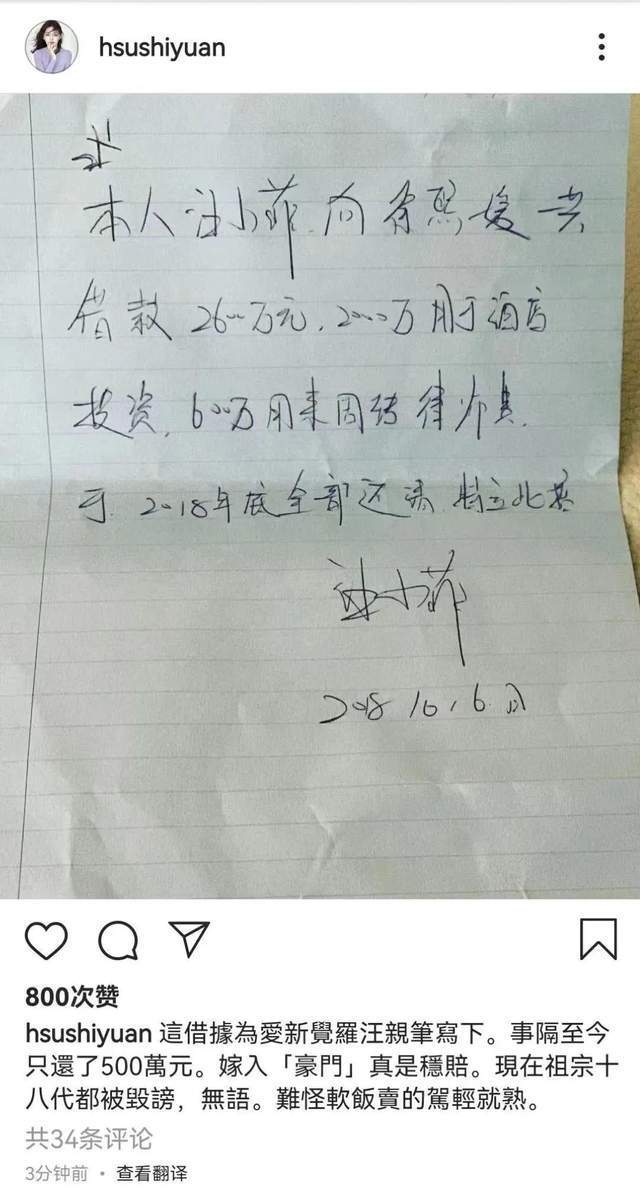 hsushiyuan
本人汪小菲.向徐熙媛共
借款2600万元.2000万用于酒店
投资.600万用来周转律师费.
于.2018年底全部还清.特立此
汪小菲
2018 10, 6.日
800次赞
hsushiyuan 這借據為愛新覺羅汪親筆寫下。事隔至今
只還了500萬元。嫁入「豪門」真是穩賠。現在祖宗十
八代都被毀謗，無語。難怪軟飯賣的駕輕就熟。
共34条评论
3分钟前 • 查看翻译